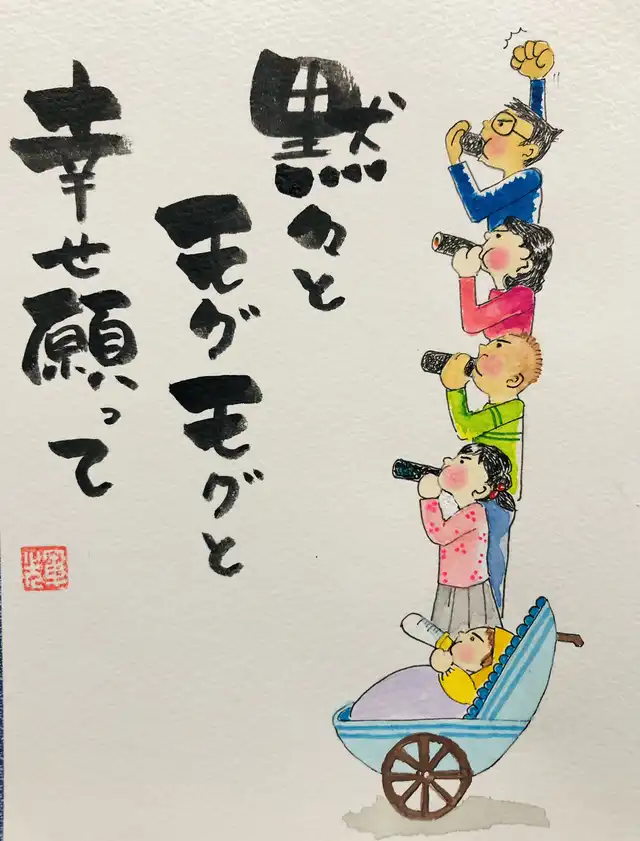 黙々と
モグモグと
幸せ願って
輝